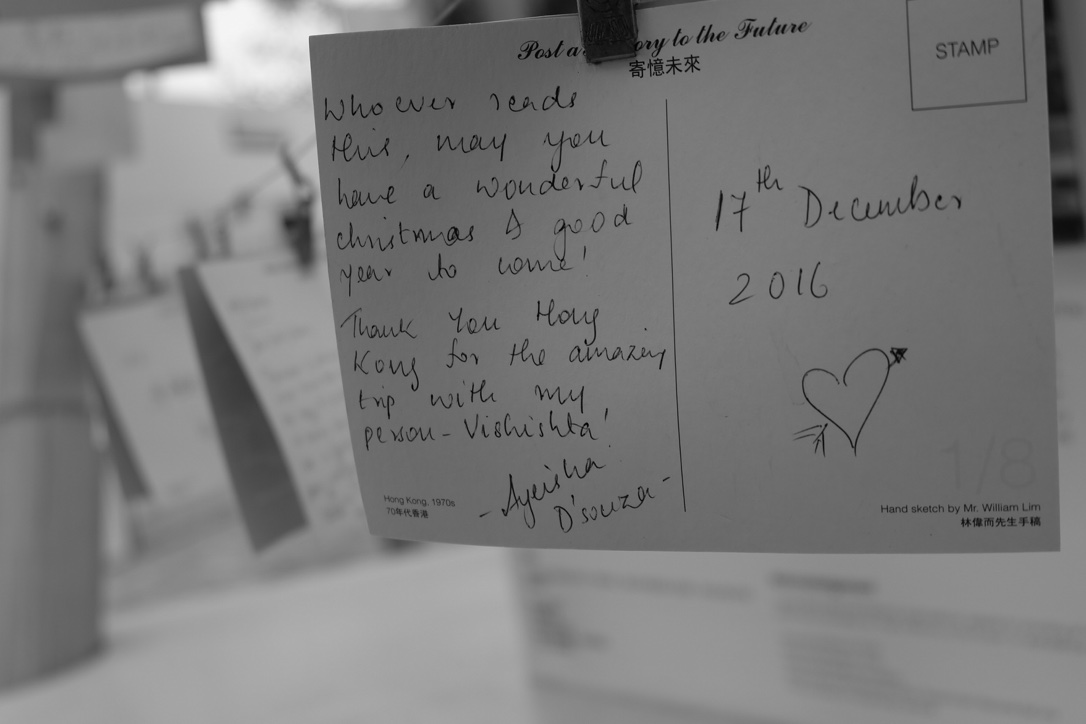 Post a ory to the Future
寄憶未來
STAMP
Whoever reads
this, may you
have a wonderful
christmas & good
year to come!
Thank You Hong
Kong for the amazing
trip with my
person - Vishishta!
- Ayeisha
D'souza -
17th December
2016
1/8
Hong Kong, 1970s
70年代香港
Hand sketch by Mr. William Lim
林偉而先生手稿